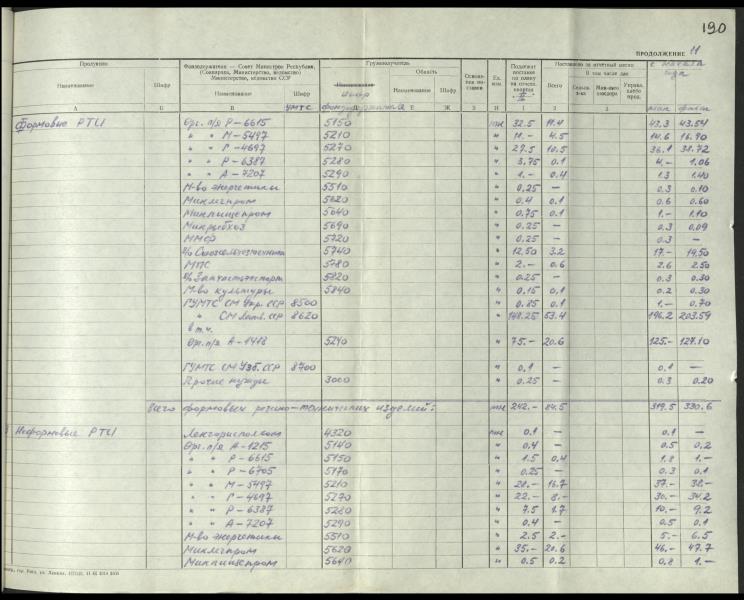 190
ПРОДОЛЖЕНИЕ 11
Продукция
Фондодержатели — Совет Министров Республики, (Совнархоз, Министерство, ведомство) Министерство, ведомство СССР
Грузополучатель
Поставлено за отчетный месяц
с начала года
Наименование Шифр Наименование Шифр Область Наименование Шифр Ед. изм. Всего В том числе для
УМТС фондодержателя план факт
Формовые РТИ Орг. п/я Р-6615 5150 тн 32.5 11.4 43.3 43.54
" " М-5497 5210 " 11.- 4.5 14.6 16.90
" " Г-4697 5270 " 27.5 10.5 36.1 38.72
" " Р-6387 5280 " 3.75 0.1 4.- 1.06
" " А-7207 5290 " 1.- 0.4 1.3 1.40
М-во энергетики 5510 " 0.25 — 0.3 0.10
Минлегпром 5620 " 0.4 0.1 0.6 0.60
Минпищепром 5640 " 0.75 0.1 1.- 1.10
Минрыбхоз 5690 " 0.25 — 0.3 0.09
ММФ 5720 " 0.25 — 0.3 —
5740 " 12.50 3.2 17.- 19.50
МПС 5780 " 2.- 0.6 2.6 2.50
5820 " 0.25 — 0.3 0.30
М-во культуры 5840 " 0.15 0.1 0.2 0.30
ГУМТС СМ Укр. ССР 8500 " 0.85 0.1 1.- 0.70
" СМ Латв. ССР 8620 " 148.25 53.4 196.2 203.59
в т.ч.
Орг. п/я А-1418 5240 " 75.- 20.6 125.- 127.10
ГУМТС СМ Узб. ССР 8700 " 0.1 — 0.1 —
Прочие нужды 3000 " 0.25 — 0.3 0.20
Всего формовых резино-технических изделий: тн 242.- 84.5 319.5 330.6
Неформовые РТИ Ленгорисполком 4320 тн 0.1 — 0.1 —
Орг. п/я А-1215 5140 " 0.4 — 0.5 0.2
" " Р-6615 5150 " 1.5 0.4 1.8 1.-
" " Р-6705 5170 " 0.25 — 0.3 0.1
" " М-5497 5210 " 28.- 16.7 37.- 38.-
" " Г-4697 5270 " 22.- 8.- 30.- 34.2
" " Р-6387 5280 " 7.5 1.7 10.- 9.2
" " А-7207 5290 " 0.4 — 0.5 0.1
М-во энергетики 5510 " 2.5 2.- 5.- 6.5
Минлегпром 5620 " 35.- 20.6 46.- 47.7
Минпищепром 5640 " 0.5 0.2 0.8 1.-